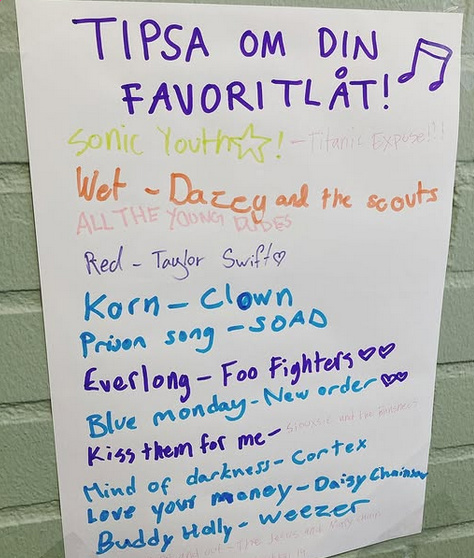 TIPSA OM DIN
FAVORITLÅT!
Sonic Youth ! - Titanic Expose!!!
Wet - Dazey and the scouts
ALL THE YOUNG DUDES
Red - Taylor Swift
Korn - Clown
Prison song - SOAD
Everlong - Foo Fighters
Blue monday - New order
Kiss them for me - siouxsie and the banshees
Mind of darkness - Cortex
Love your money - Daisy Chainsaw
Buddy Holly - weezer
the Jesus and Mary chain